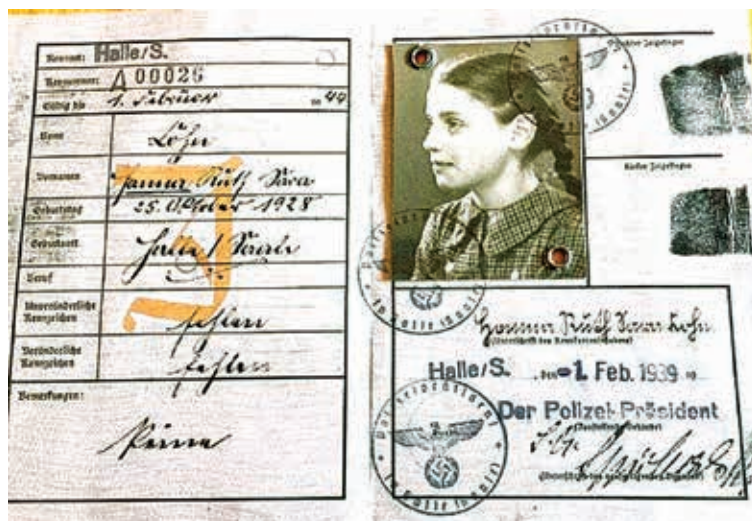 Kennort: Halle/S.
Kennummer: A 00026
Gültig bis 1. Februar 1944
Name
Cohn
Vornamen
Hanna Ruth Sara
Geburtstag
25. Oktober 1928
Geburtsort
Halle / Saale
Beruf
Unveränderliche
Kennzeichen
fehlen
Veränderliche
Kennzeichen
fehlen
Bemerkungen:
Keine
J
Rechter Zeigefinger
Linker Zeigefinger
Hanna Ruth Sara Cohn.
(Unterschrift des Kennkarteninhabers)
Halle/S. , den -1. Feb. 1939
Der Polizei-Präsident
(Ausstellende Behörde)
Polizeipräsident
in Halle